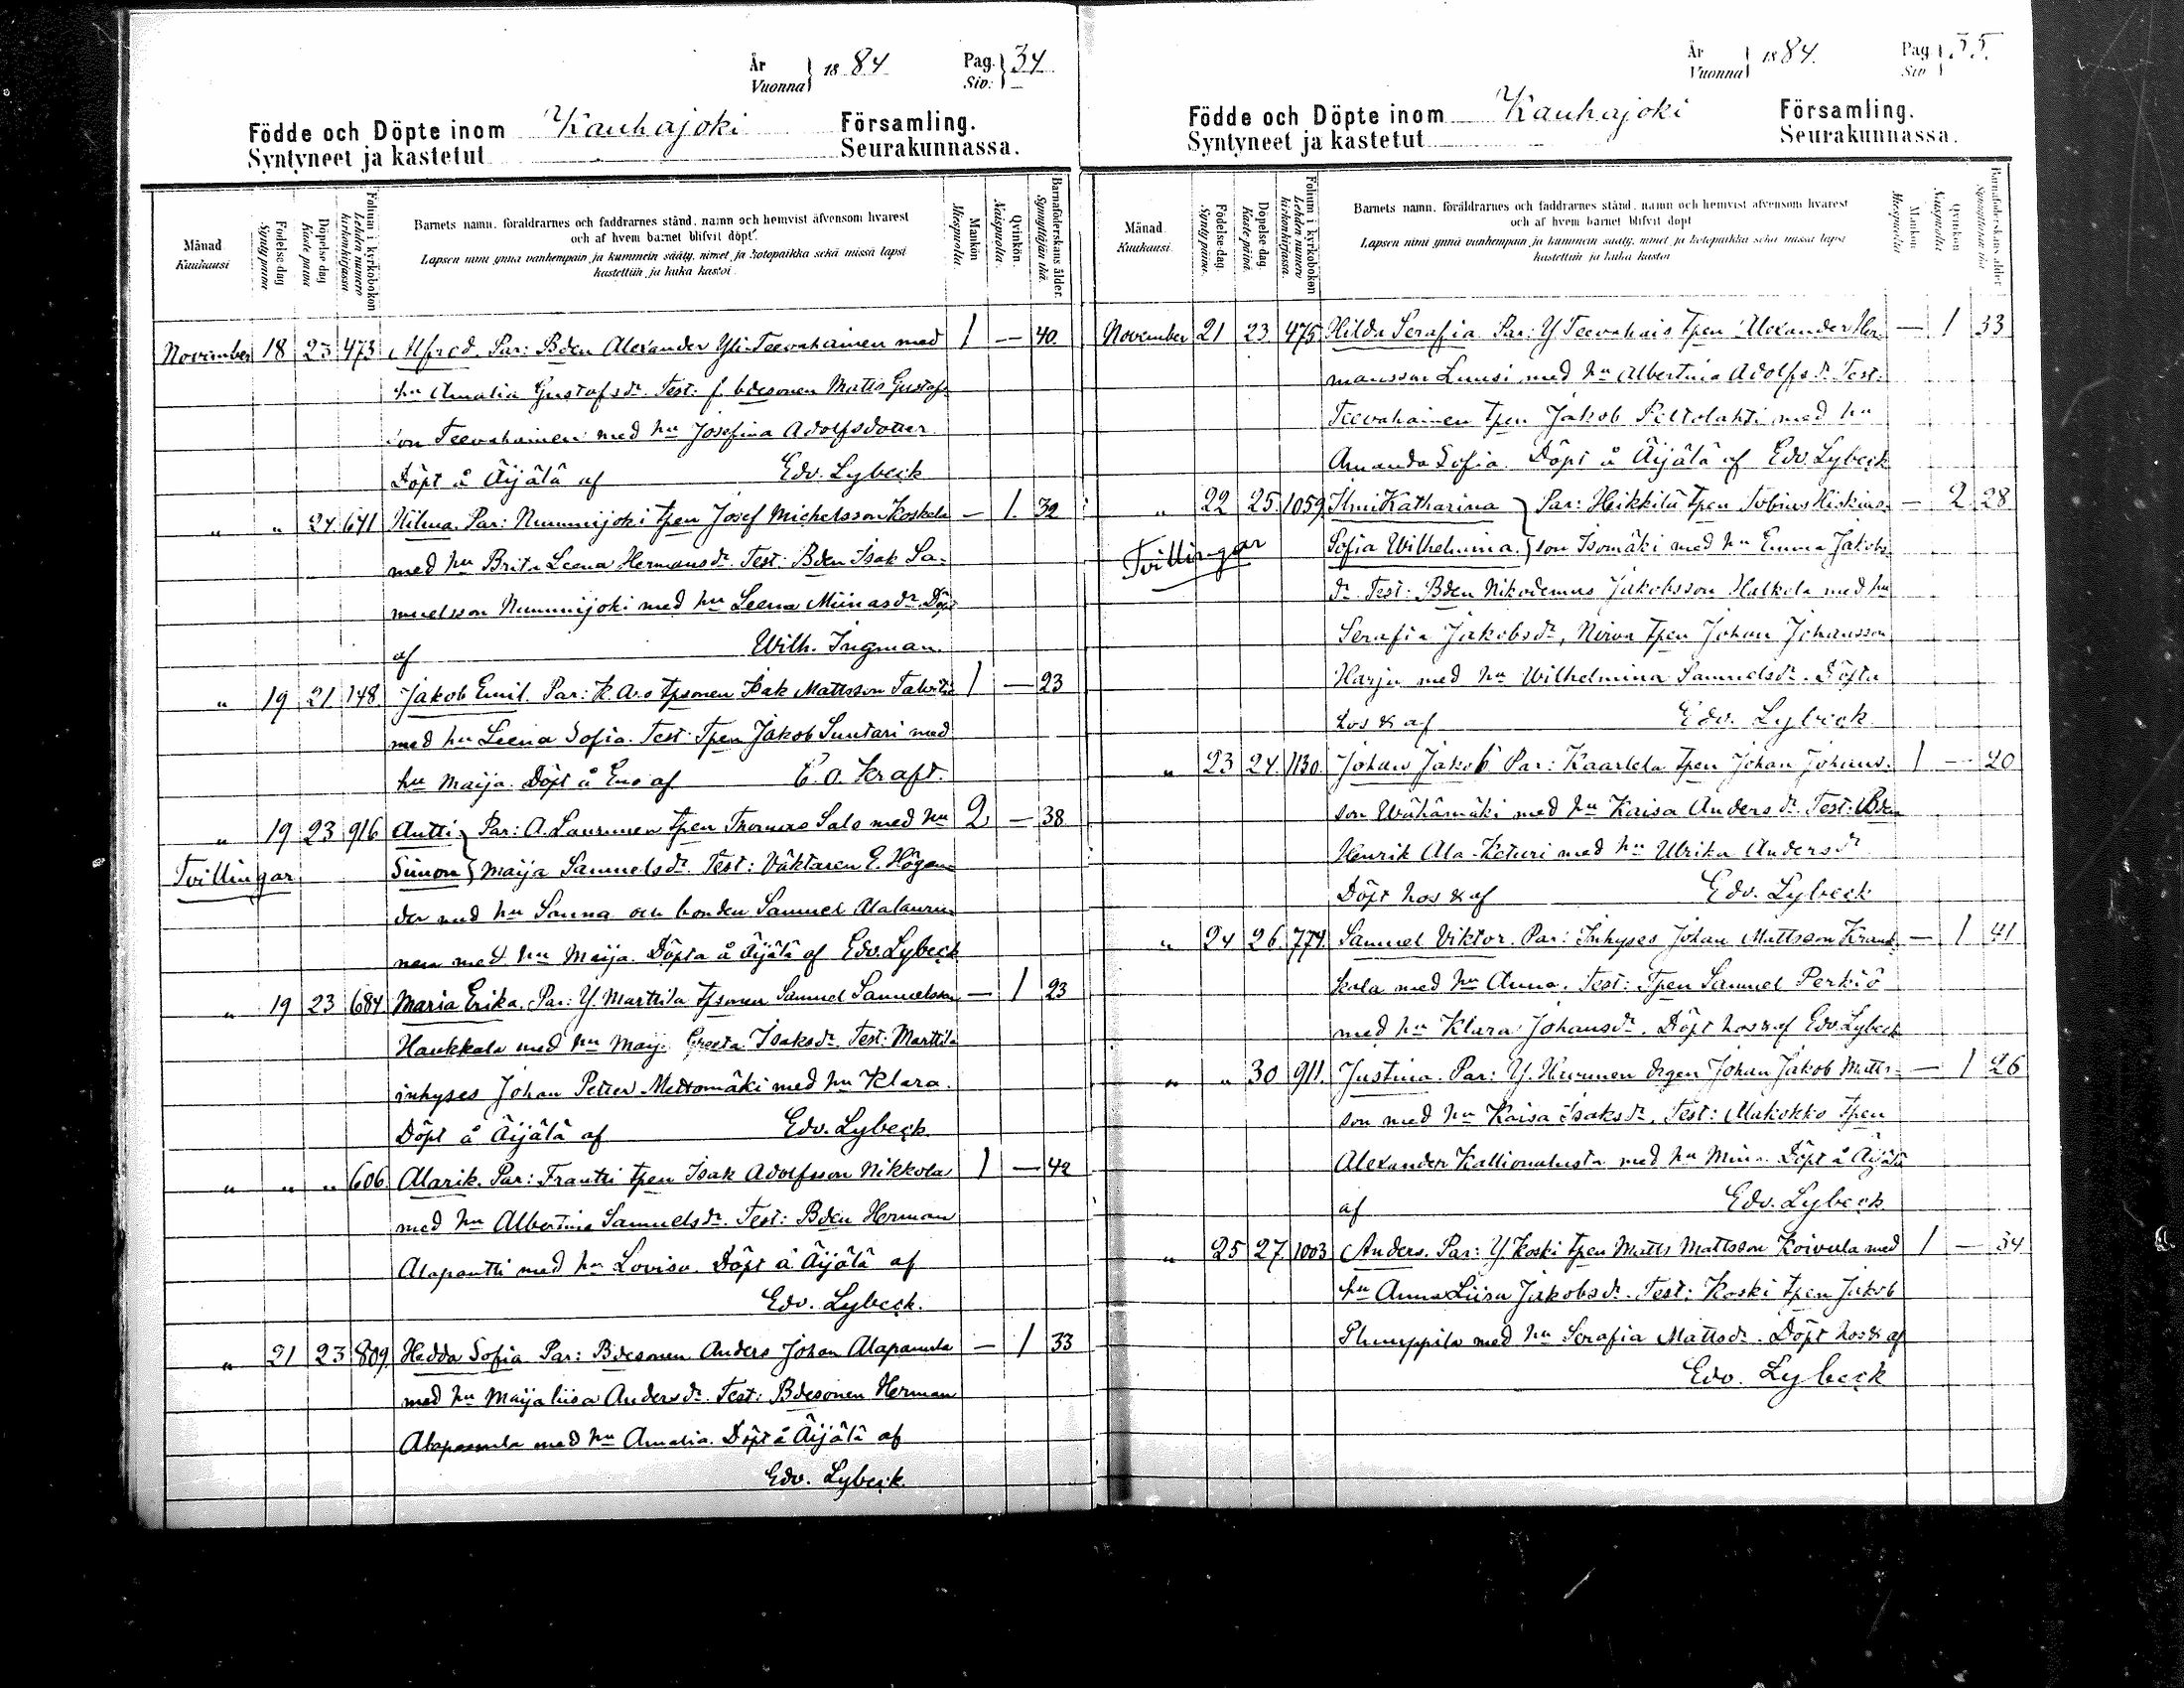 År
Vuonna } 1884
Pag.
Siv: } 34
Födde och Döpte inom Kauhajoki Församling.
Syntyneet ja kastetut Seurakunnassa.
Månad
Kuukausi
Födelse-dag
Synty päivä
Döpelse-dag
Kaste päivä
Folium i kyrkoboken
Lehden numero kirkonkirjassa
Barnets namn, föräldrarnes och faddrarnes stånd, namn och hemvist äfvensom hvarest
och af hvem barnet blifvit döpt.
Lapsen nimi ynnä vanhempain ja kummein sääty, nimet ja kotopaikka sekä missä lapsi
kastettiin ja kuka kastoi
Mankön
Miespuolia.
Qvinkön.
Naispuolia.
Barnaföderskans ålder.
Synnyttäjän ikä.
November 18 23 473 Alfred. Par: Bden Alexander Yli-Teevahainen med 1 — 40
hu Amalia Gustafsdr. Test: f. bdesonen Matts Gustafs
son Teevahainen med hu Josefina Adolfsdotter
Döpt å Äijälä af Edv. Lybeck
" " 24 641 Hilma. Par: Nummijoki tpen Josef Michelsson Koskela — 1. 32
med hu Brita Leena Hermansdr. Test: Bden Isak Sa-
muelsson Nummijoki med hu Leena Miinasdr. Döpt
af Wilh. Ingman.
" 19 21 148. Jakob Emil. Par: K. Aro tpsonen Isak Mattsson 1 — 23
med hu Leena Sofia. Test: Tpen Jakob Suutari med
hu Maija. Döpt å Eno af C. O. Kraft.
" 19 23 916 Antti } Par: A. Laurunen tpen Thomas Salo med hu 2 — 38
Tvillingar Simon } Maija Samuelsdr. Test: Väktaren E. Högan
der med hu Sanna och bonden Samuel Alalauru
nen med hu Maija. Döpta å Äijälä af Edv. Lybeck
" 19 23 684. Maria Erika. Par: Y. Marttila tpsonen Samuel Samuelsson — 1 23
Haukkala med hu Maija Greeta Isaksdr. Test: Marttila
inhyses Johan Petter Mettomäki med hu Klara.
Döpt å Äijälä af Edv. Lybeck.
" " " 606. Alarik. Par: Frantti tpen Isak Adolfsson Nikkola 1 — 42
med hu Albertina Samuelsdr. Test: Bden Herman
Alapantti med hu Lovisa. Döpt å Äijälä af
Edv. Lybeck.
" 21 23 809. Hedda Sofia. Par: Bdesonen Anders Johan Alapanula — 1 33
med hu Maijaliisa Andersdr. Test: Bdesonen Herman
Alapanula med hu Amalia. Döpt å Äijälä af
Edv. Lybeck.
År
Vuonna } 1884.
Pag
Siv } 35.
Födde och Döpte inom Kauhajoki Församling.
Syntyneet ja kastetut Seurakunnassa.
Månad
Kuukausi
Födelse-dag.
Synty päivä.
Döpelse-dag.
Kaste päivä.
Folium i kyrkoboken
Lehden numero kirkonkirjassa.
Barnets namn, föräldrarnes och faddrarnes stånd, namn och hemvist äfvensom hvarest
och af hvem barnet blifvit döpt
Lapsen nimi ynnä vanhempain ja kummein sääty, nimet ja kotopaikka sekä missä lapsi
kastettiin ja kuka kastoi
Mankön
Miespuolia
Qvinkön
Naispuolia
Barnaföderskans ålder
Synnyttäjän ikä
November 21 23 475 Hilda Serafia. Par: Y Teevahais tpen Alexander Her- — 1 33
mansson Luusi med hu Albertina Adolfsdr. Test:
Teevahainen tpen Jakob Peltolahti med hu
Amanda Sofia. Döpt å Äijälä af Edv. Lybeck
" 22 25. 1059 Ilmi Katharina } Par: Heikkilä tpen Tobias Hiskias- — 2 28
Tvillingar Sofia Wilhelmina. } son Isomäki med hu Emma Jakobs
dr. Test: Bden Nikodemus Jakobsson Halkola med hu
Serafia Jakobsdr, Nirva tpen Johan Johansson
Harju med hu Wilhelmina Samuelsdr. Döpta
hos & af Edv. Lybeck
" 23 24 1130. Johan Jakob Par: Kaarlela tpen Johan Johans- 1 — 20
son Wähämäki med hu Kaisa Andersdr. Test: Bden
Henrik Ala-Keturi med hu Ulrika Andersdr
Döpt hos & af Edv. Lybeck
" 24 26 774. Samuel Viktor. Par: Inhyses Johan Mattsson — 1 41
med hu Anna. Test: Tpen Samuel Perkiö
med hu Klara Johansdr. Döpt hos & af Edv. Lybeck
" " 30 911. Justina. Par: Y. Hurunen Johan Jakob Matts- — 1 26
son med hu Kaisa Isaksdr. Test: tpen
Alexander med hu Miina. Döpt å Äijälä
af Edv. Lybeck
" 25 27. 1003 Anders. Par: Y Koski tpen Matts Mattsson Koivula med 1 — 34
hu Anna Liisa Jakobsdr. Test: Koski tpen Jakob
med hu Serafia Mattsdr. Döpt hos & af
Edv. Lybeck